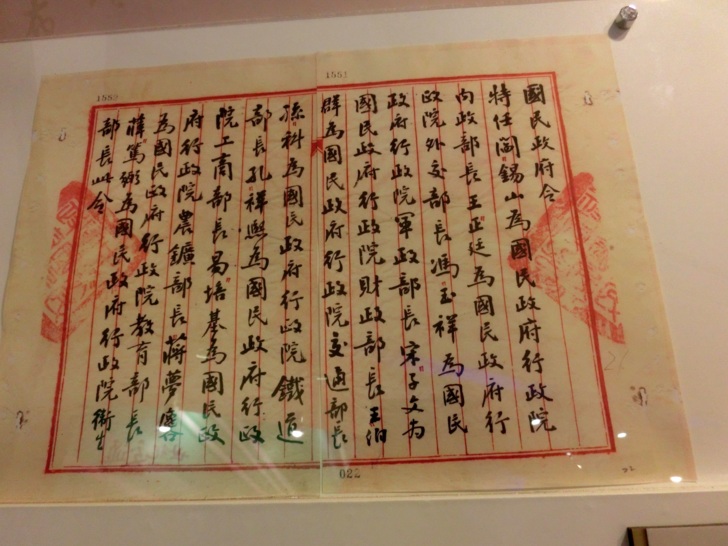 1551
國民政府令
特任閻錫山為國民政府行政院
內政部長王正廷為國民政府行
政院外交部長馮玉祥為國民
政府行政院軍政部長宋子文為
國民政府行政院財政部長王伯
群為國民政府行政院交通部長
孫科為國民政府行政院鐵道
部長孔祥熙為國民政府行政
院工商部長易培基為國民政
府行政院農鑛部長蔣夢麐
為國民政府行政院教育部長
薛篤弼為國民政府行政院衛生
部長此令
022